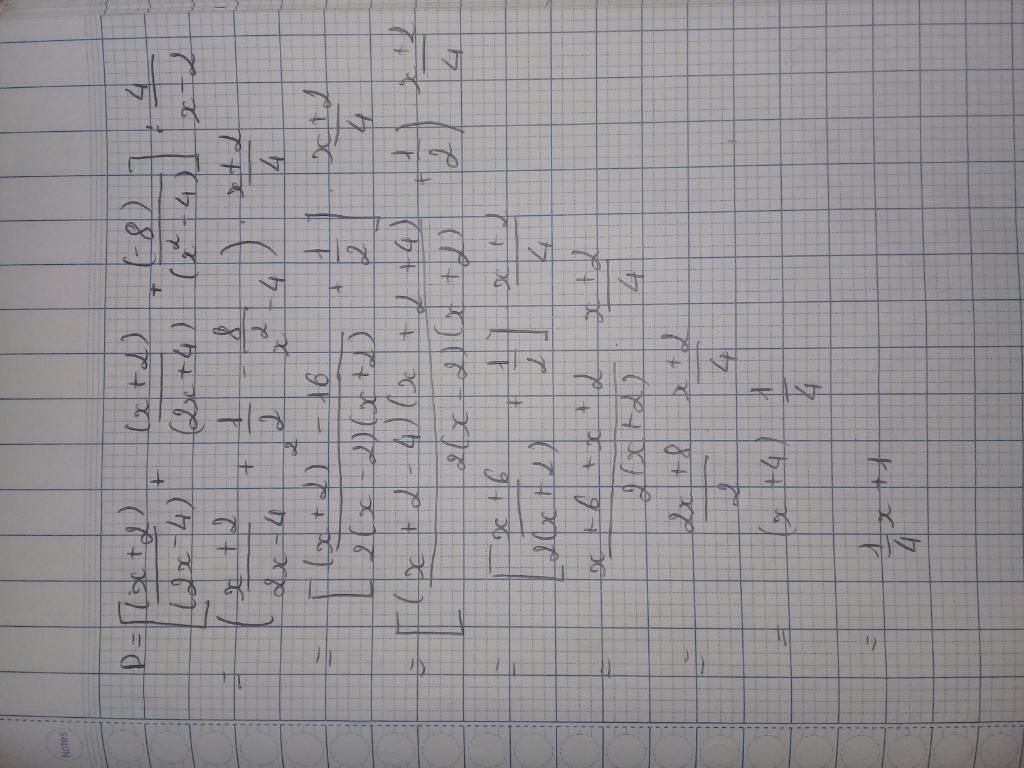 Notes
P = [(x+2)/(2x-4) + (x+2)/(2x+4) + (-8)/(x²-4)] : 4/(x-2)
= (x+2/2x-4 + 1/2 - 8/x²-4) . x+2/4
= [(x+2)² - 16/2(x-2)(x+2) + 1/2] x+2/4
= [(x+2-4)(x+2+4)/2(x-2)(x+2) + 1/2) x+2/4
= [x+6/2(x+2) + 1/2] x+2/4
= x+6+x+2/2(x+2) x+2/4
= 2x+8/2 x+2/4
= (x+4) 1/4
= 1/4 x + 1